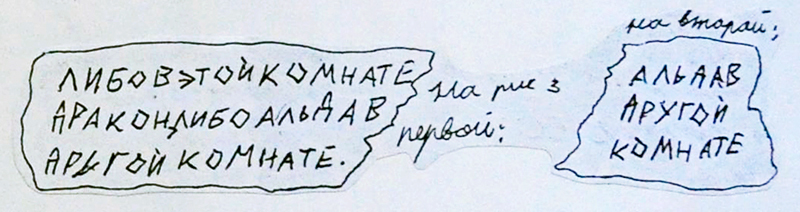 ЛИБОВЭТОЙКОМНАТЕ
ДРАКОН,ЛИБОАЛЬДАВ
ДРУГОЙ КОМНАТЕ.
На рис 3
первой:
на второй:
АЛЬДАВ
ДРУГОЙ
КОМНАТЕ